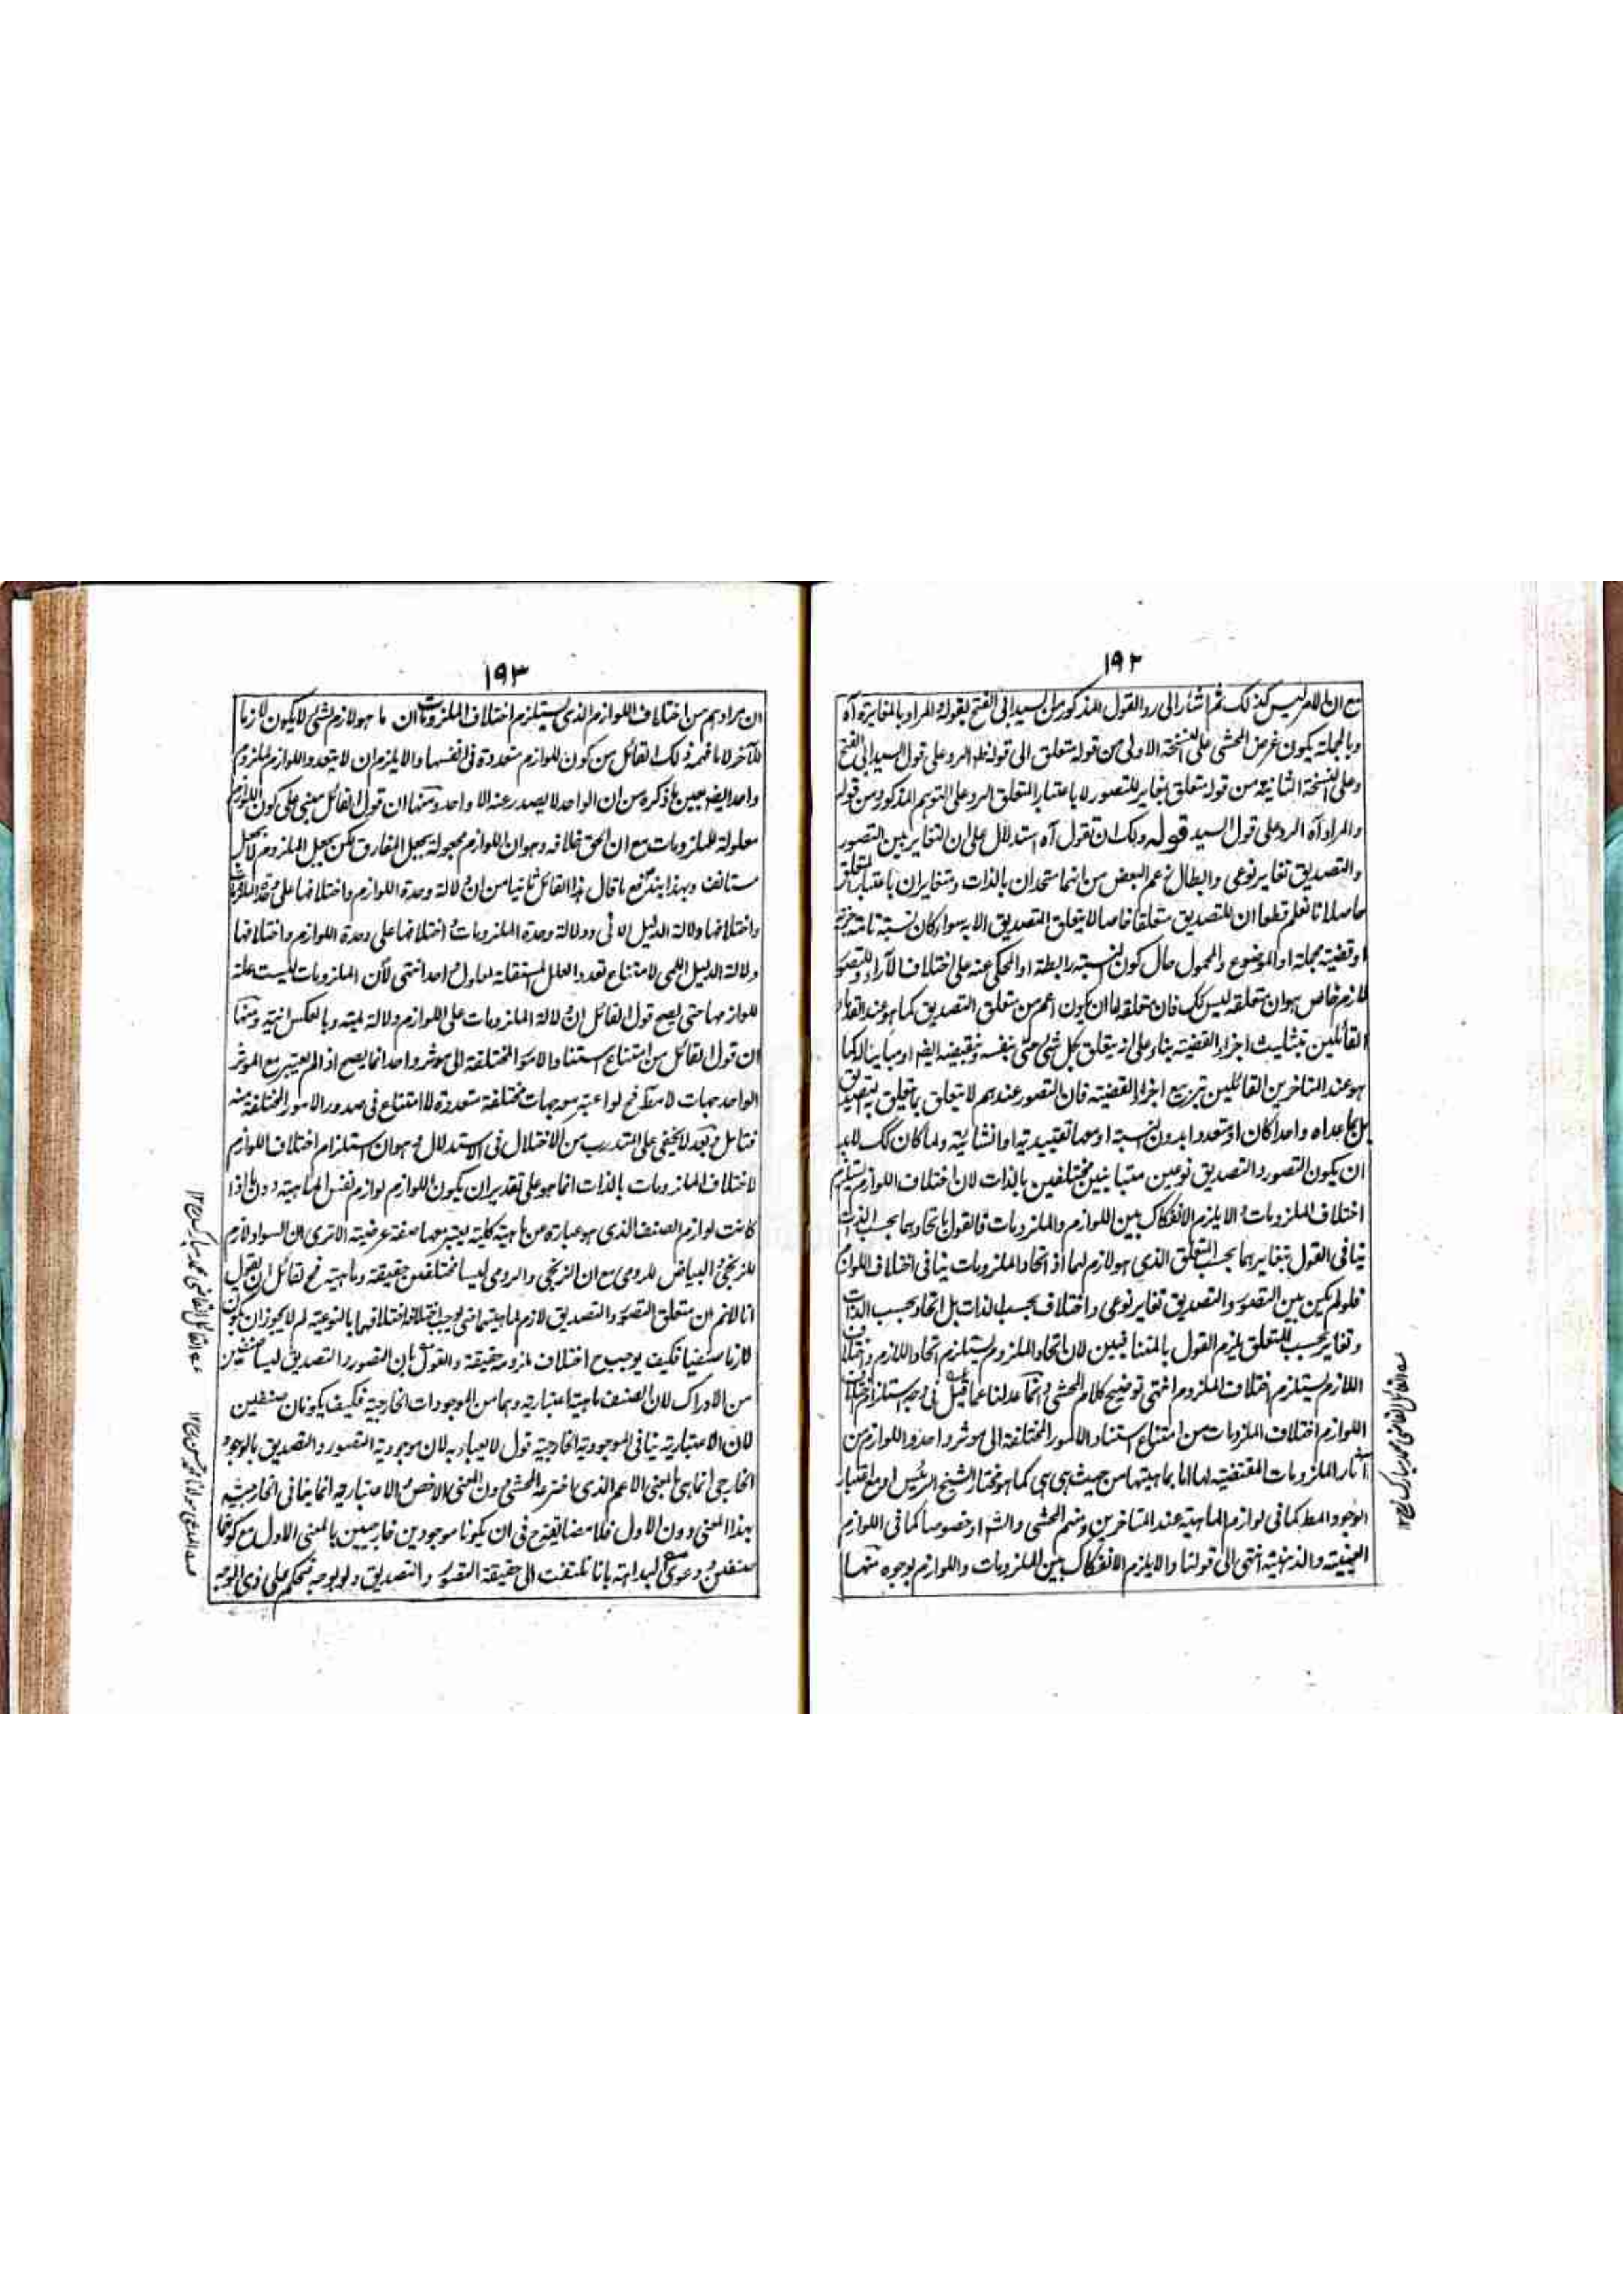 ١٩٢
مع ان الامر ليس كذلك ثم اشار الى رد القول المذكور من السيد ابى الفتح بقوله المراد بالمغايرة آه
وبالجملة يكون غرض المحشى على النسخة الاولى من قوله متعلق الى قوله فله الرد على قول السيد ابى الفتح
وعلى النسخة الثانية من قوله متعلق بتغاير للتصور لا باعتبار المتعلق الرد على التوهم المذكور ومن قوله
والمراد آه الرد على قول السيد قوله ولك ان تقول آه استدلال على ان التغاير بين التصور
والتصديق تغاير نوعى وابطال زعم البعض من انهما متحدان بالذات ومتغايران باعتبار المتعلق
حاصله انا نعلم قطعا ان للتصديق متعلقا خاصا لا يتعلق التصديق الا به سواء كان نسبة تامة خبرية
او قضية مجملة او الموضوع والمحمول حال كون النسبة رابطة او المحكى عنه على اختلاف الآراء وللتصور
لازم خاص هو ان متعلقه ليس كك فان متعلقه اما ان يكون اعم من متعلق التصديق كما هو عند القدماء
القائلين بتثليث اجزاء القضية بناء على انه يتعلق بكل شئ حتى بنفسه ونقيضه ايضا او مباينا له كما
هو عند المتاخرين القائلين بتربيع اجزاء القضية فان التصور عندهم لا يتعلق بما يتعلق به التصديق
بل بما عداه واحدا كان او متعددا بدون النسبة او معها تقييدية او انشائية ولما كان كك لا بد
ان يكون التصور والتصديق نوعين متباينين مختلفين بالذات لان اختلاف اللوازم يستلزم
اختلاف الملزومات والا يلزم الانفكاك بين اللوازم والملزومات فالقول باتحادهما بحسب الذات
ينافى القول بتغايرهما بحسب المتعلق الذى هو لازم لهما اذ اتحاد الملزومات ينافى اختلاف اللوازم
فلو لم يكن بين التصور والتصديق تغاير نوعى واختلاف بحسب الذات بل اتحاد بحسب الذات
وتغاير بحسب المتعلق يلزم القول بالمتنافيين لان اتحاد الملزوم يستلزم اتحاد اللازم واختلاف
اللازم يستلزم اختلاف الملزوم انتهى توضيح كلام المحشى وانما عدلنا عما قيل فى وجه استلزام اختلاف
اللوازم اختلاف الملزومات من امتناع استناد الامور المختلفة الى موثر واحد و اللوازم من
آثار الملزومات المقتضية لها اما بماهيتها من حيث هى هى كما هو مختار الشيخ الرئيس او مع اعتبار
الوجود المط كما فى لوازم الماهية عند المتاخرين ومنهم المحشى والشه او خصوصا كما فى اللوازم
العينية والذهنية انتهى الى قولنا والا يلزم الانفكاك بين الملزومات واللوازم بوجوه منها
عه القائل القاضى محمد مبارك رح ١٢
١٩٣
ان مرادهم من اختلاف اللوازم الذى يستلزم اختلاف الملزومات ان ما هو لازم لشئ لا يكون لازما
للآخر لا ما فهمه ذلك القائل من كون اللوازم متعددة فى انفسها والا يلزم ان لا يتعدد اللوازم لملزوم
واحد ايضا بعين ما ذكره من ان الواحد لا يصدر عنه الا واحد ومنها ان قول القائل مبنى على كون اللوازم
معلولة للملزومات مع ان الحق خلافه وهو ان اللوازم مجعولة بجعل المفارق لكن بجعل الملزوم لا بجعل
مستانف وبهذا يندفع ما قال هذا القائل ثانيا من ان دلالة وحدة اللوازم واختلافها على وحدة الملزومات
واختلافها دلالة الدليل الانى ودلالة وحدة الملزومات واختلافها على وحدة اللوازم واختلافها
دلالة الدليل اللمى لامتناع تعدد العلل المستقلة لمعلول واحد انتهى لأن الملزومات ليست علة
للوازمها حتى يصح قول القائل ان دلالة الملزومات على اللوازم دلالة لمية وبالعكس انية ومنها
ان قول القائل من امتناع استناد الامور المختلفة الى موثر واحد انما يصح اذا لم يعتبر مع الموثر
الواحد جهات لا مط فح لو اعتبر معه جهات مختلفة متعددة لا امتناع فى صدور الامور المختلفة منه
فتامل وبعد لا يخفى على المتدرب من الاختلال فى الاستدلال وهو ان استلزام اختلاف اللوازم
لاختلاف الملزومات بالذات انما هو على تقدير ان يكون اللوازم لوازم نفس الماهية دون ما اذا
كانت لوازم الصنف الذى هو عبارة عن ماهية كلية يعتبر معها صفة عرضية الا ترى ان السواد لازم
للزنجى والبياض للرومى مع ان الزنجى والرومى ليسا مختلفين حقيقة وماهية فح لقائل ان يقول
انا لانم ان متعلق التصور والتصديق لازم لماهيتهما حتى يوجب اختلافه اختلافهما بالنوعية لم لا يجوز ان يكون
لازما صنفيا فكيف يوجب ح اختلاف ملزومه حقيقة والقول بان التصور والتصديق ليسا صنفين
من الادراك لان الصنف ماهية اعتبارية وهما من الموجودات الخارجية فكيف يكونان صنفين
لان الاعتبارية ينافى الموجودية الخارجية قول لا يعبا به لان موجودية التصور والتصديق بالوجود
الخارجى انما هى بالمعنى الاعم الذى اخترعه المحشى دون المعنى الاخص والاعتبارية انما ينافى الخارجية
بهذا المعنى دون الاول فلا مضايقة ح فى ان يكونا موجودين خارجيين بالمعنى الاول مع كونهما
صنفين ودعوى البداهة بانا نلتفت الى حقيقة التصور والتصديق ولو بوجه فنحكم على ذى الوجه
عه القائل القاضى محمد مبارك رح ١٢
عه المدعى مولانا محمد حسن رح ١٢